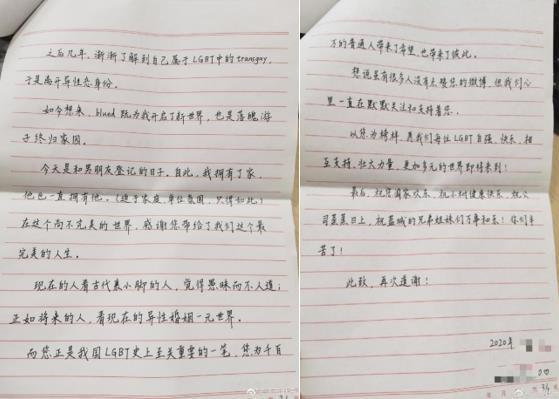 之后几年,渐渐了解到自己属于LGBT中的transgay,
于是离开异性恋身份。
如今想来,blued既为我开启了新世界,也是落魄游
子终归家园。
今天是和男朋友登记的日子。自此,我拥有了家,
他也一直拥有他。(迫于家庭、单位氛围,只得如此)
在这个尚不完美的世界,感谢您带给了我们这个最
完美的人生。
现在的人看古代裹小脚的人,觉得愚昧而不人道;
正如将来的人,看现在的异性婚姻一元世界。
而您正是我国LGBT史上至关重要的一笔,您为千百
万的普通人带来了希望,也带来了彼此。
想说虽有很多人没有去接您的微博,但我们心
里一直在默默关注和支持着您。
以您为榜样,愿我们每位LGBT自强、快乐,相
互支持,壮大力量,更加多元的世界即将来到!
最后,祝您阖家欢乐,祝小树健康快乐,祝公
司蒸蒸日上,祝蓝城的兄弟姐妹们万事如意!你们辛
苦了!
此致,再次道谢!
2020年